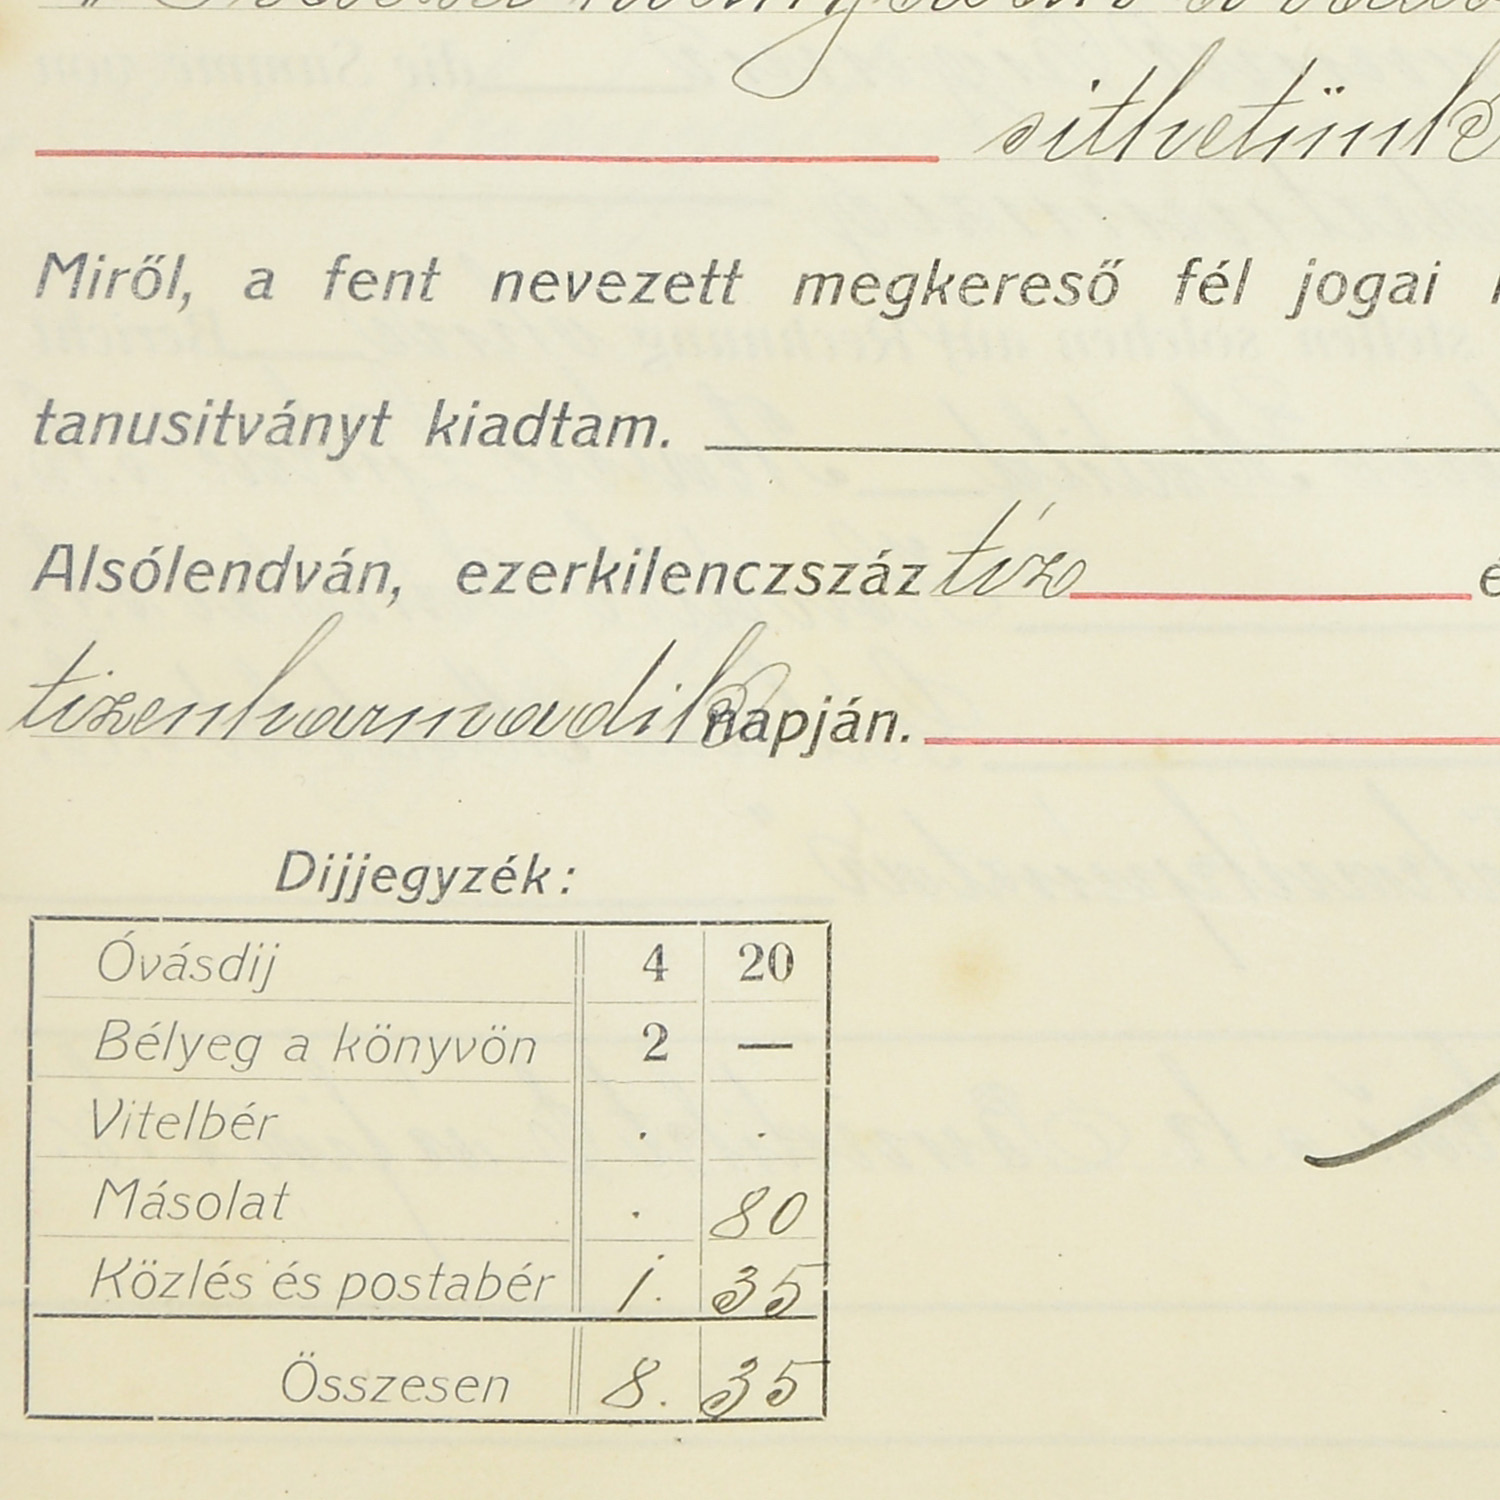 sithetünk
Miről, a fent nevezett megkereső fél jogai
tanusitványt kiadtam.
Alsólendván, ezerkilenczszáz tíz
tizenharmadik napján.
Dijjegyzék:
Óvásdij 4 20
Bélyeg a könyvön 2 —
Vitelbér . .
Másolat . 80
Közlés és postabér 1. 35
Összesen 8. 35